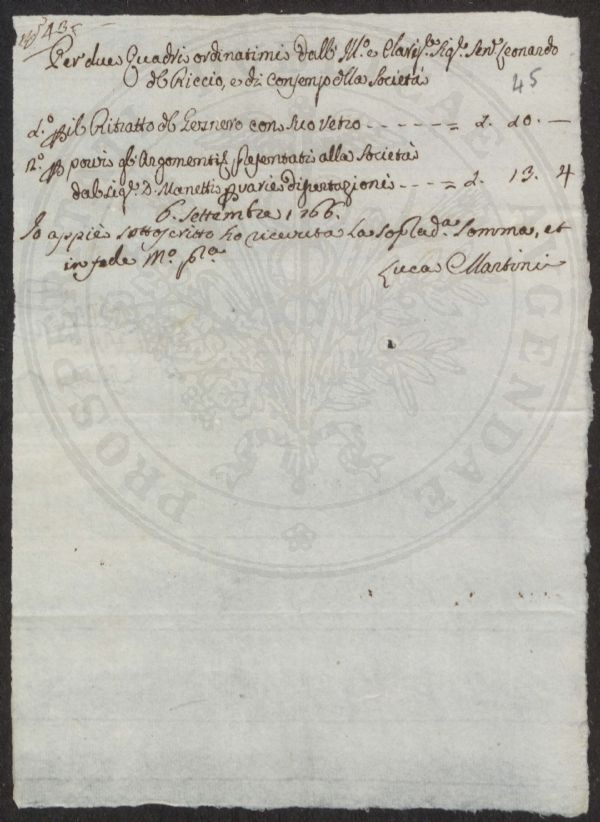 43
Per due Quadri ordinatimi dall' Ill.º e Clariss.º Sig.r Sen.r Leonardo
del Riccio, e di consenso della Società
45
1.º il Ritratto del Lezznero con suo vetro - - - - - - - = L. 20. —
2.º porvi gl'Argomenti presentati alla Società
dal Sig.r D. Manetti p varie disertazioni - - - - = L. 13. 4
6. Settembre 1766.
Io appiè sottoscritto ho ricevuta La sop.ad.a Somma, et
in fede M.º p.a
Luca Martini
PROSPERITATI PUBLICAE AUGENDAE